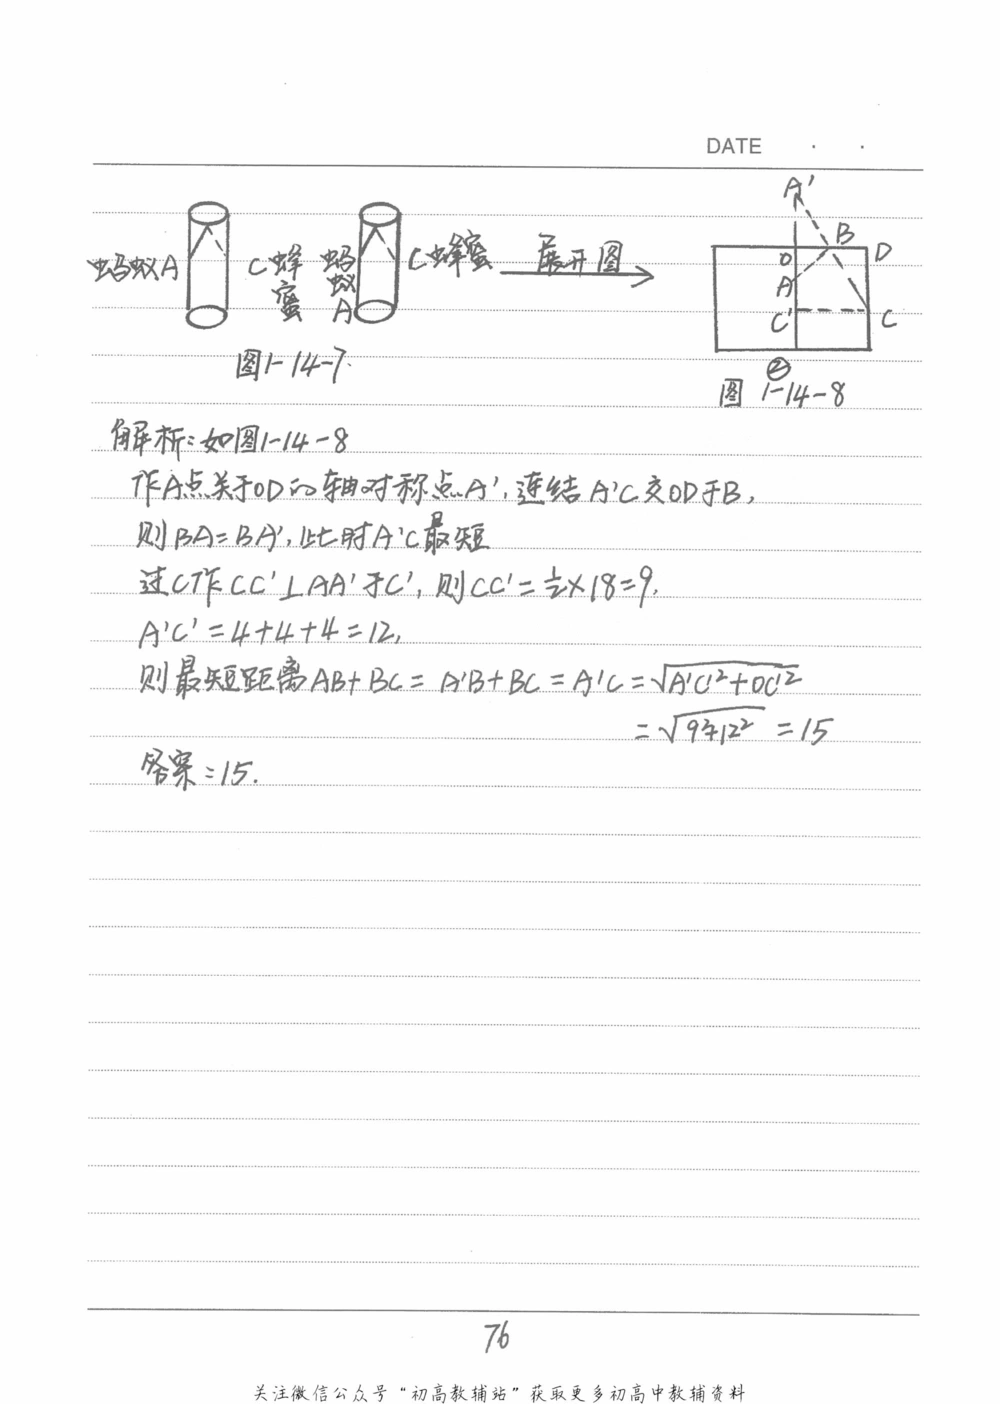 DATE
A'
B
O
D
A
C'
C
②
蚂蚁A
C蜂蜜
蚂蚁A
C蜂蜜
展开图
图1-14-7.
图 1-14-8
解析:如图1-14-8
作A点关于OD的轴对称点A',连结A'C交OD于B,
则BA=BA',此时A'C最短
过C作CC'⊥AA'于C',则CC'=½×18=9.
A'C'=4+4+4=12,
则最短距离AB+BC=A'B+BC=A'C=√A'C'²+OC'²
=√9²+12² =15
答案:15.
76
关注微信公众号“初高教辅站”获取更多初高中教辅资料